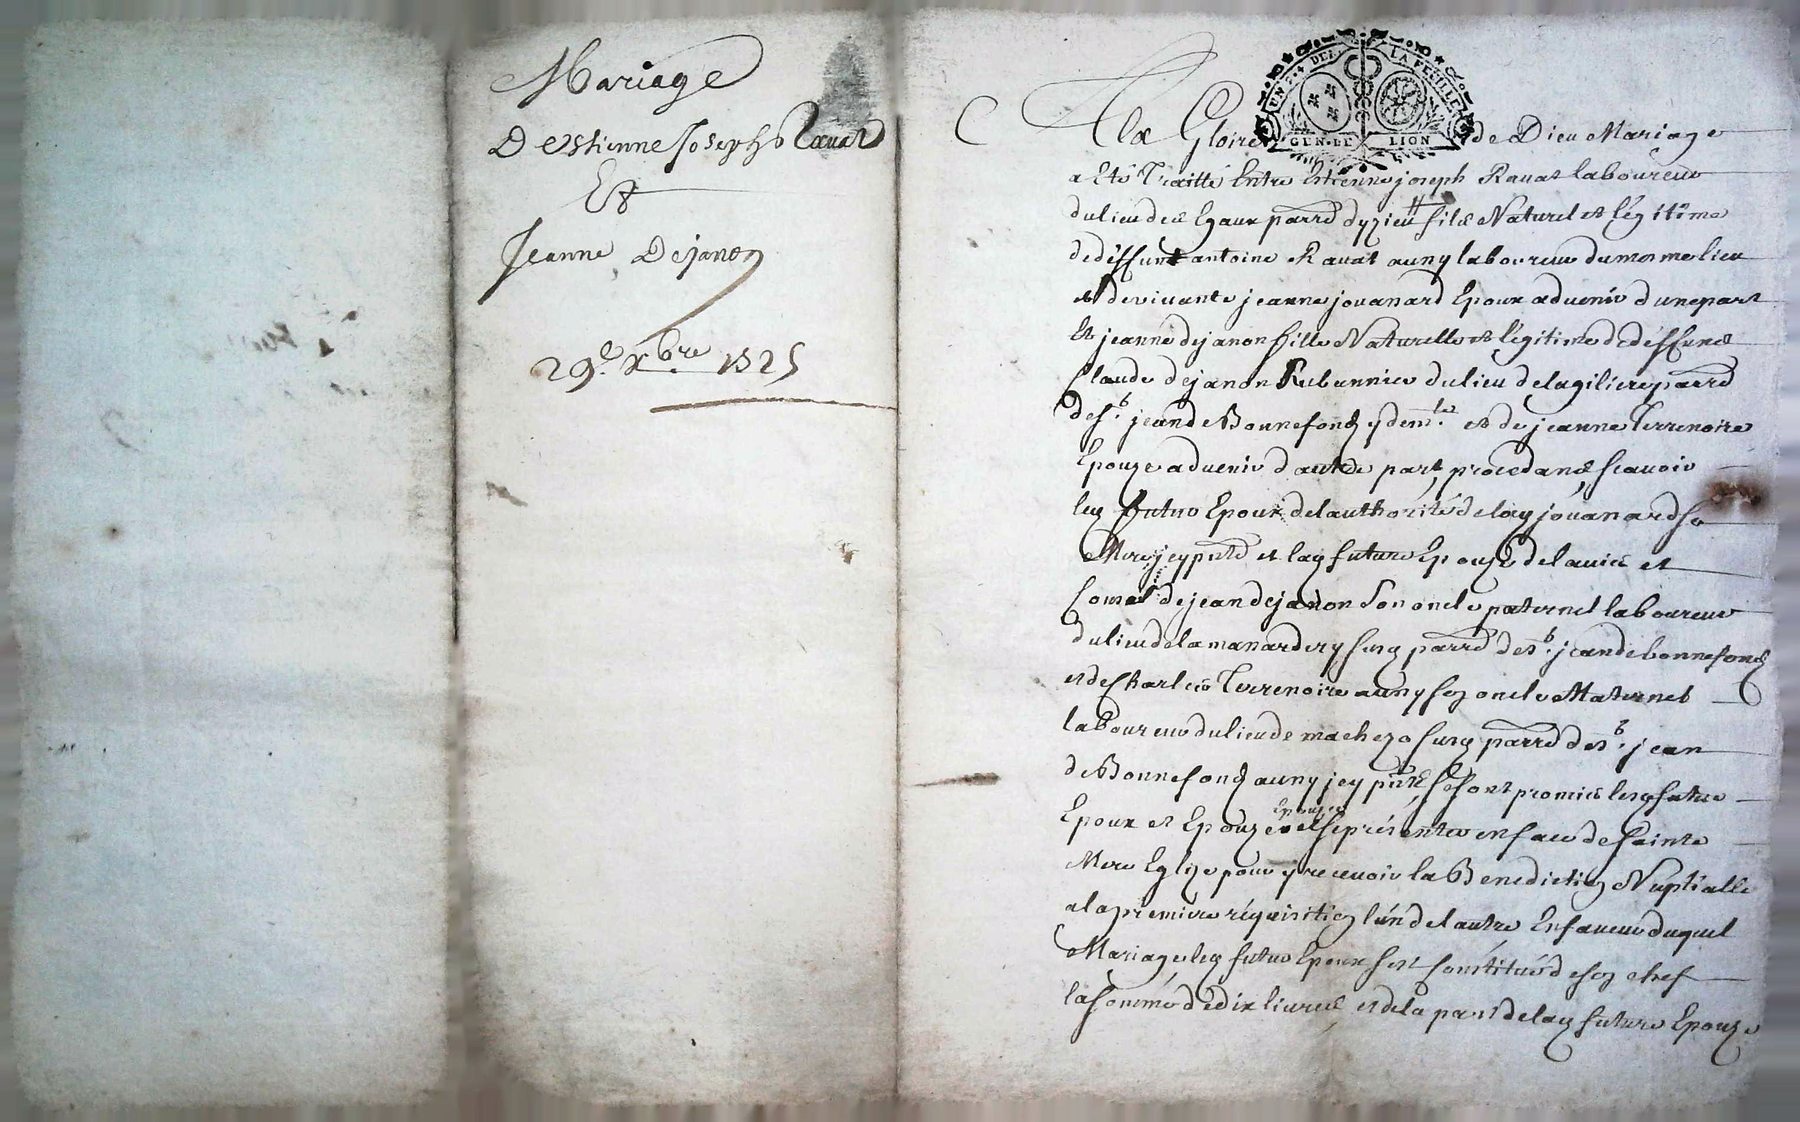 Mariage
D'Estienne Joseph Ravat
Et
Jeanne Dejanon
29.e xbre 1525
UN S. DE LA FEUILLE
GEN. DE LION
A la Gloire de Dieu Mariage
a Eté Traitté Entre Estienne joseph Ravat laboureur
du lieu des Egaux parre dyzieu fils Naturel et légitime
de déffunt antoine Ravat auny laboureur du mesme lieu
et de vivante jeanne jouanard Epoux advenir d'une part
Et jeanne dejanon fille Naturelle et légitime de déffunt
Claude dejanon Rubannier du lieu de la giliere parre
de st. jean de Bonnefond et de jeanne Terrenoire
Epouze advenir d'autre part, procedants, scavoir
led futur Epoux de l'authorité de lad jouanard sa
Mere jcy pnte et lad future Epouze de l'avis et
Conseil de jean dejanon son oncle paternel laboureur
du lieu de la manardery susd parre de st. jean de bonnefond
et de Charles Terrenoire auny son oncle Maternel
laboureur du lieu de machezo susd parre de st. jean
de Bonnefond auny jcy pnts, se sont promis lesd futur
Epoux et Epouze Epouzer et se présenter en face de sainte
Mere Eglize pour y recevoir la Benediction Nuptialle
a la premiere réquisition l'un de l'autre En faveur duquel
Mariage led futur Epoux s'est Constitué de son chef
la somme de dix livres et de la part de lad future Epouze